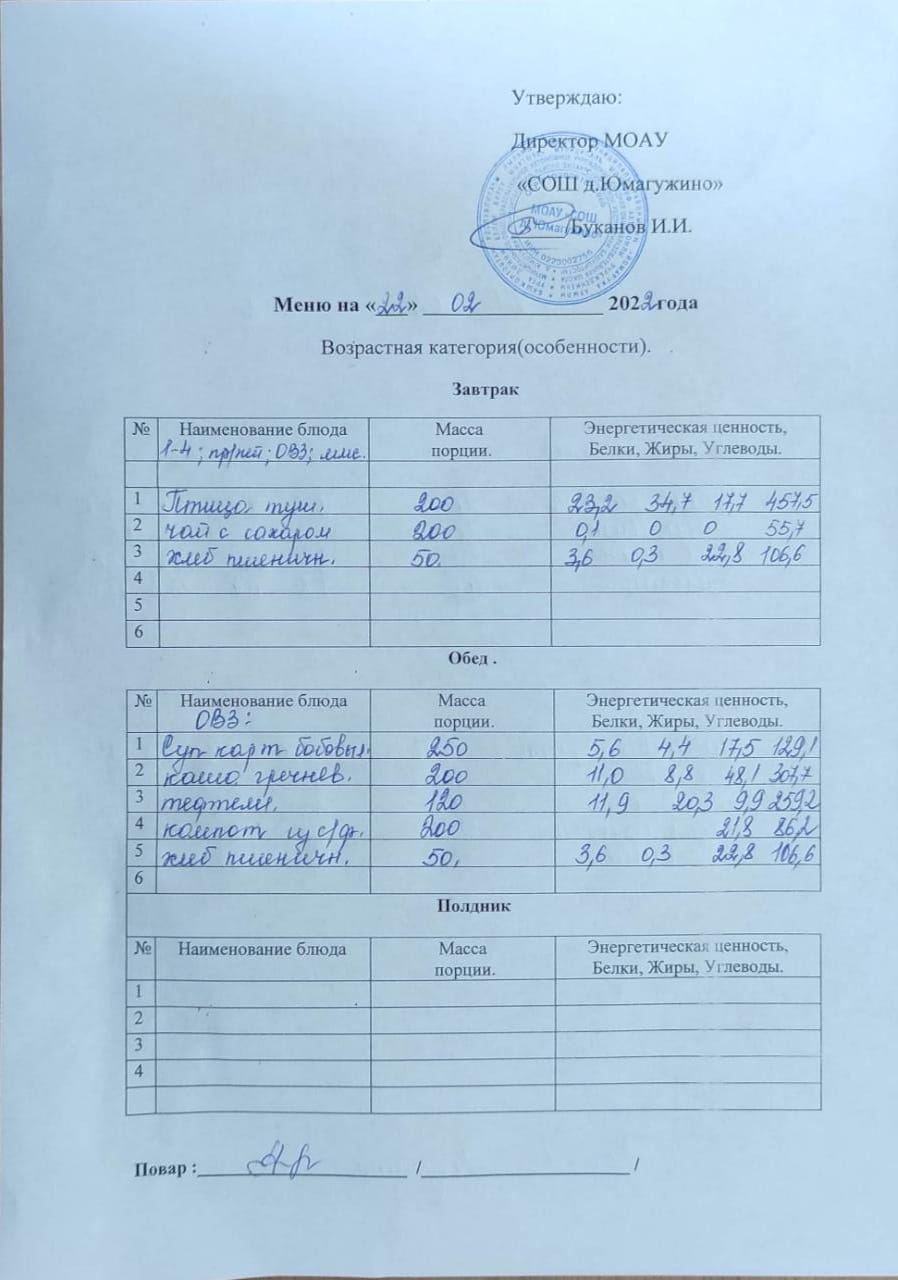 Утверждаю:
Директор МОАУ
«СОШ д.Юмагужино»
МОАУ СОШ
/Буканов И.И.
Меню на «22» 02 2022 года
Возрастная категория(особенности).
Завтрак
№ Наименование блюда Масса порции. Энергетическая ценность, Белки, Жиры, Углеводы.
1-4 ; ОВЗ;
1 Птица туш. 200 23,2 34,7 17,7 457,5
2 чай с сахаром 200 0,1 0 0 55,7
3 хлеб пшеничн. 50. 3,6 0,3 22,8 106,6
4
5
6
Обед .
№ Наименование блюда Масса порции. Энергетическая ценность, Белки, Жиры, Углеводы.
ОВЗ:
1 Суп карт бобовый. 250 5,6 4,4 17,5 129,1
2 каша гречнев. 200 11,0 8,8 48,1 307,7
3 тефтели. 120 11,9 20,3 9,9 259,2
4 компот из с/фр. 200 21,8 86,2
5 хлеб пшеничн. 50. 3,6 0,3 22,8 106,6
6
Полдник
№ Наименование блюда Масса порции. Энергетическая ценность, Белки, Жиры, Углеводы.
1
2
3
4
Повар : / /